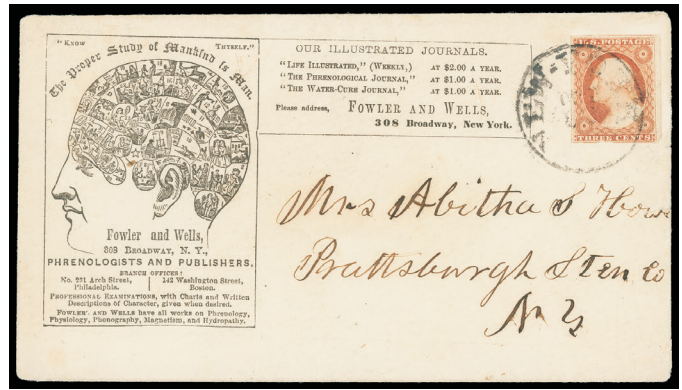 "Know Thyself."
The Proper Study of Mankind is Man.
Fowler and Wells,
308 Broadway, N. Y.,
PHRENOLOGISTS AND PUBLISHERS.
BRANCH OFFICES:
No. 231 Arch Street, Philadelphia.
142 Washington Street, Boston.
Professional Examinations, with Charts and Written
Descriptions of Character, given when desired.
Fowler and Wells have all works on Phrenology,
Physiology, Phonography, Magnetism, and Hydropathy.
OUR ILLUSTRATED JOURNALS.
"Life Illustrated," (Weekly,) at $2.00 a year.
"The Phrenological Journal," at $1.00 a year.
"The Water-Cure Journal," at $1.00 a year.
Please address, Fowler and Wells,
308 Broadway, New York.
U.S. POSTAGE
THREE CENTS
Mrs Abitha S Howe
Prattsburgh Steu Co
N Y